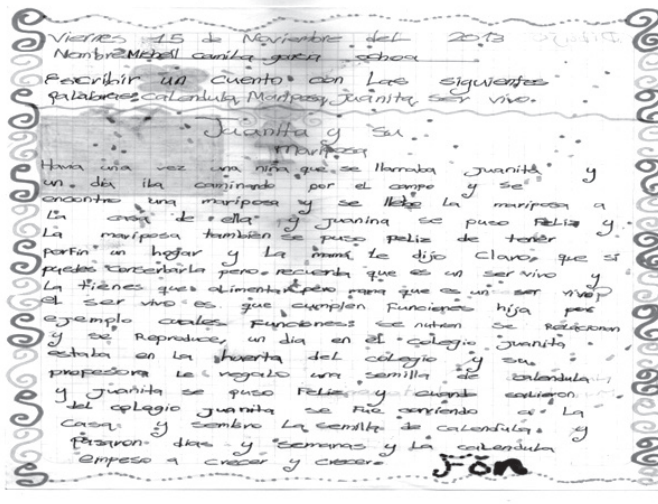 Viernes 15 de Noviembre del 2013
Nombre Mishell camila garcia ochoa
escribir un cuento con Las siguientes
palabras: calendula, Mariposa, Juanita, ser vivo.
Juanita y su
mariposa
Havia una vez una niña que se llamaba Juanita y
un dia iba caminando por el campo y se
encontro una mariposa y se llebo La mariposa a
La casa de ella y juanina se puso Feliz y
La mariposa tambien se puso feliz de tener
porfin un hogar y La mamá Le dijo claro, que si
puedes conserbarla pero recuerda que es un ser vivo y
La tienes que alimentar pero mama que es un ser vivo?
el ser vivo es que cumplen Funciones hija por
ejemplo cuales Funciones: se nutren se Relacionan
y se Reproduce, un dia en el colegio juanita
estaba en La huerta del colegio y su
propesora Le regalo una semilla de calendula
y juanita se puso Feliz y cuando salieron
del colegio juanita se Fue corriendo a La
casa y sembro La semilla de calendula. y
pasaron dias y semanas y La calendula
empeso a crecer y crecer.
Fin